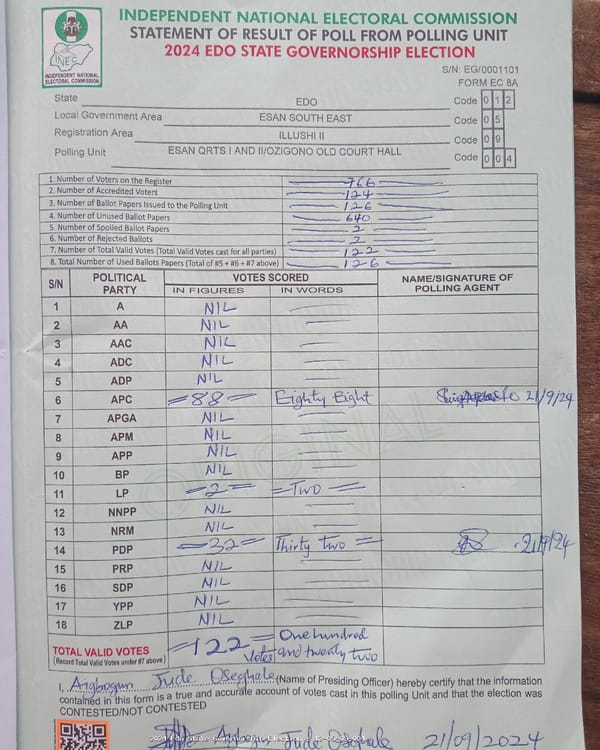 INDEPENDENT NATIONAL ELECTORAL COMMISSION
STATEMENT OF RESULT OF POLL FROM POLLING UNIT
2024 EDO STATE GOVERNORSHIP ELECTION
INEC
INDEPENDENT NATIONAL
ELECTORAL COMMISSION
S/N: EG/0001101
FORM EC 8A
State EDO Code 0 1 2
Local Government Area ESAN SOUTH EAST Code 0 5
Registration Area ILLUSHI II Code 0 9
Polling Unit ESAN QRTS I AND II/OZIGONO OLD COURT HALL Code 0 0 4
1. Number of Voters on the Register 766
2. Number of Accredited Voters 124
3. Number of Ballot Papers Issued to the Polling Unit 126
4. Number of Unused Ballot Papers 640
5. Number of Spoiled Ballot Papers 2
6. Number of Rejected Ballots 2
7. Number of Total Valid Votes (Total Valid Votes cast for all parties) 122
8. Total Number of Used Ballots Papers (Total of #5 + #6 + #7 above) 126
S/N POLITICAL PARTY VOTES SCORED NAME/SIGNATURE OF POLLING AGENT
IN FIGURES IN WORDS
1 A NIL
2 AA NIL
3 AAC NIL
4 ADC NIL
5 ADP NIL
6 APC =88= Eighty Eight 21/9/24
7 APGA NIL
8 APM NIL
9 APP NIL
10 BP NIL
11 LP =2= =Two=
12 NNPP NIL
13 NRM NIL
14 PDP =32= Thirty Two= 21/9/24
15 PRP NIL
16 SDP NIL
17 YPP NIL
18 ZLP NIL
TOTAL VALID VOTES =122= One hundred
(Record Total Valid Votes under #7 above) Votes and twenty two
I, Aigbogun Jude Oseghale (Name of Presiding Officer) hereby certify that the information
contained in this form is a true and accurate account of votes cast in this polling Unit and that the election was
CONTESTED/NOT CONTESTED
Jude Oseghale 21/09/2024
ORIGINAL